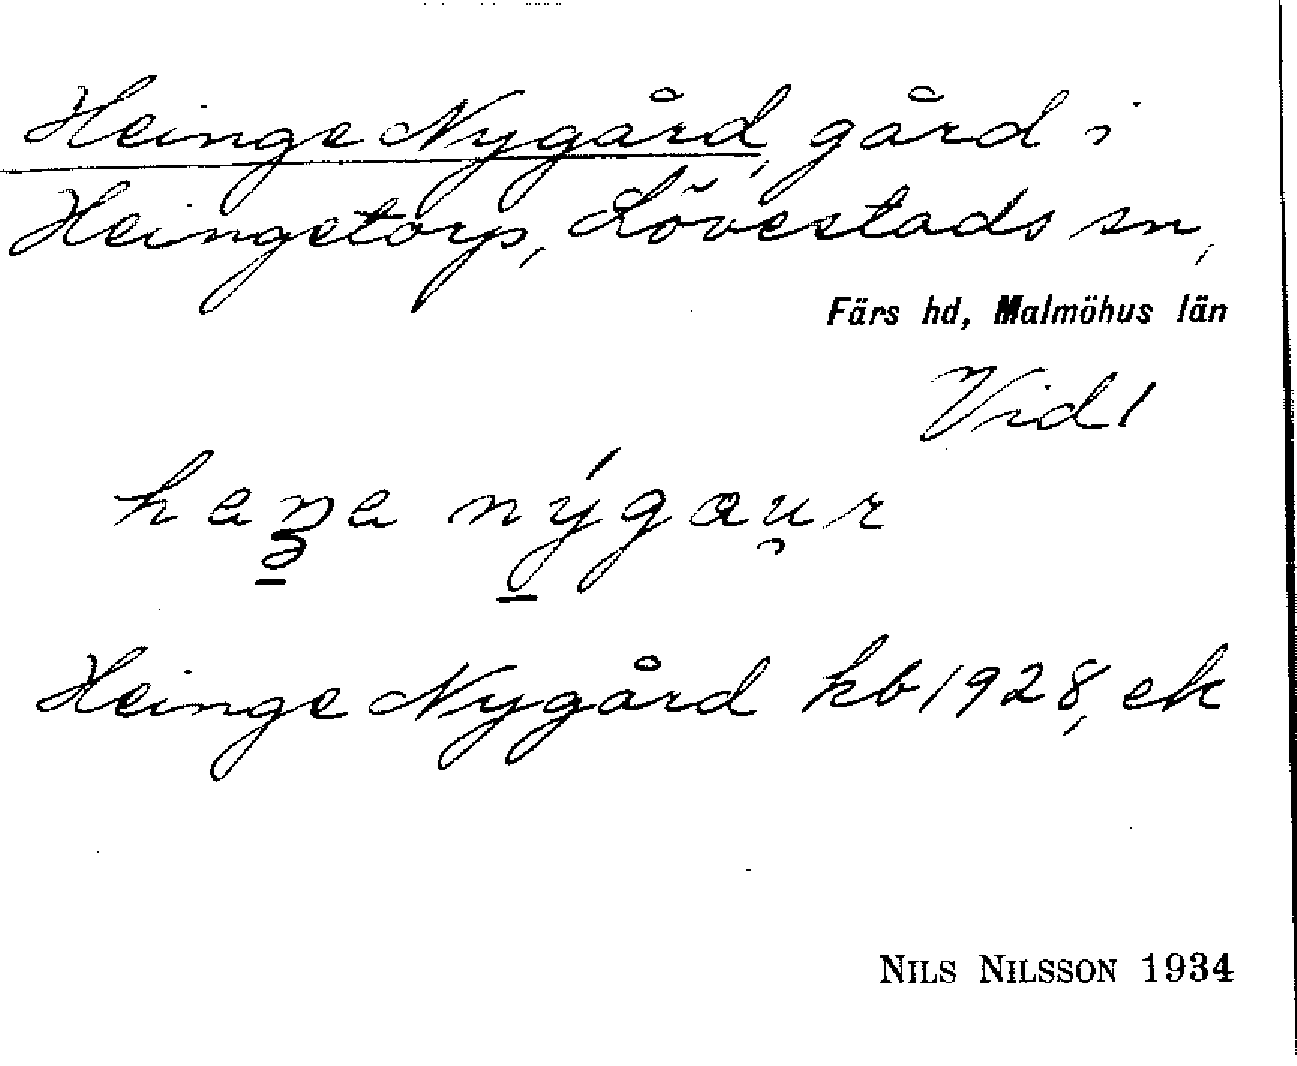 Heinge Nygård, gård i
Heingetorp, Lövestads sn,
Färs hd, Malmöhus län
Vid 1
nýgau̯r
Heinge Nygård kb 1928, ek
NILS NILSSON 1934